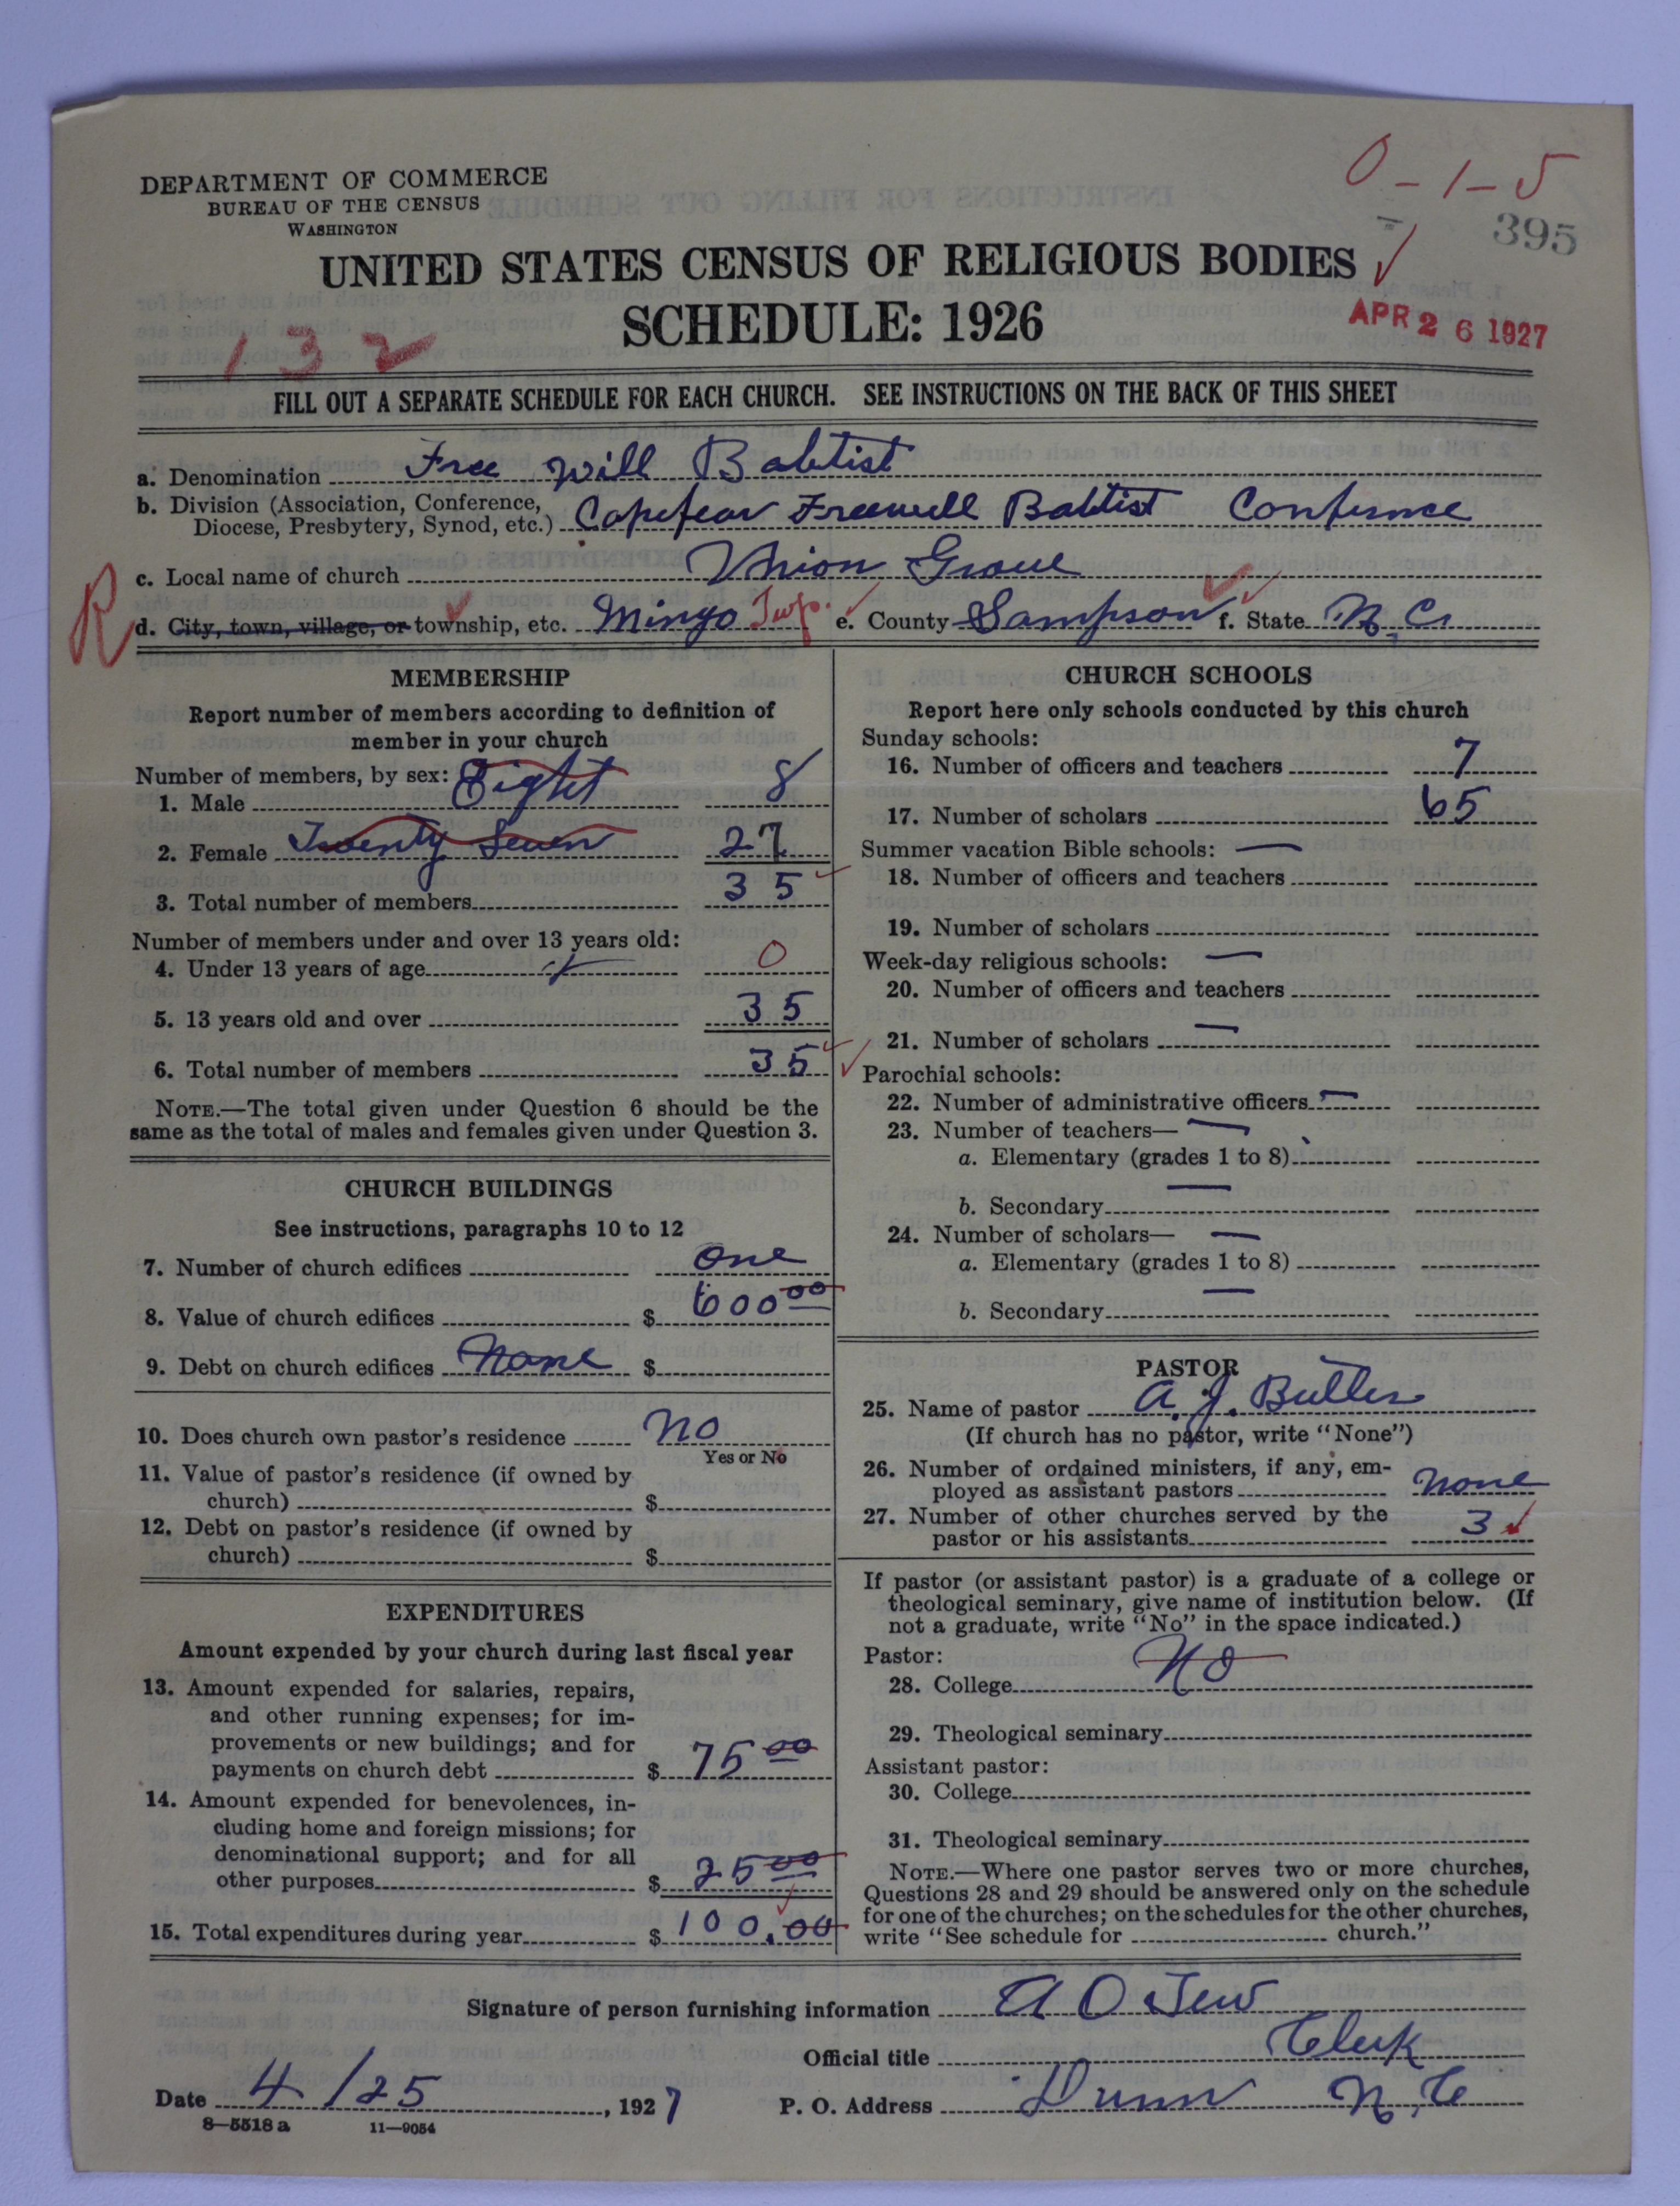 0-1-5
395
DEPARTMENT OF COMMERCE
BUREAU OF THE CENSUS
WASHINGTON
UNITED STATES CENSUS OF RELIGIOUS BODIES
SCHEDULE: 1926
APR 26 1927
132
FILL OUT A SEPARATE SCHEDULE FOR EACH CHURCH. SEE INSTRUCTIONS ON THE BACK OF THIS SHEET
a. Denomination Free will Babtist
b. Division (Association, Conference,
Diocese, Presbytery, Synod, etc.) Capefear Freewill Babtist Confrence
c. Local name of church Union Grove
R
d. City, town, village, or township, etc. Mingo Twp. e. County Sampson f. State N.C.
MEMBERSHIP
Report number of members according to definition of
member in your church
Number of members, by sex:
1. Male Eight 8
2. Female Twenty Seven 27
3. Total number of members 35
Number of members under and over 13 years old:
4. Under 13 years of age 0
5. 13 years old and over 35
6. Total number of members 35
NOTE.—The total given under Question 6 should be the
same as the total of males and females given under Question 3.
CHURCH BUILDINGS
See instructions, paragraphs 10 to 12
7. Number of church edifices one
8. Value of church edifices $ 600 00
9. Debt on church edifices None $
10. Does church own pastor's residence No
Yes or No
11. Value of pastor's residence (if owned by
church) $
12. Debt on pastor's residence (if owned by
church) $
EXPENDITURES
Amount expended by your church during last fiscal year
13. Amount expended for salaries, repairs,
and other running expenses; for im-
provements or new buildings; and for
payments on church debt $ 75 00
14. Amount expended for benevolences, in-
cluding home and foreign missions; for
denominational support; and for all
other purposes $ 25 00
15. Total expenditures during year $ 100.00
CHURCH SCHOOLS
Report here only schools conducted by this church
Sunday schools:
16. Number of officers and teachers 7
17. Number of scholars 65
Summer vacation Bible schools: —
18. Number of officers and teachers
19. Number of scholars
Week-day religious schools: —
20. Number of officers and teachers
21. Number of scholars —
Parochial schools:
22. Number of administrative officers —
23. Number of teachers— —
a. Elementary (grades 1 to 8)
b. Secondary —
24. Number of scholars— —
a. Elementary (grades 1 to 8)
b. Secondary —
PASTOR
25. Name of pastor A. J. Butler
(If church has no pastor, write "None")
26. Number of ordained ministers, if any, em-
ployed as assistant pastors None
27. Number of other churches served by the
pastor or his assistants 3
If pastor (or assistant pastor) is a graduate of a college or
theological seminary, give name of institution below. (If
not a graduate, write "No" in the space indicated.)
Pastor:
28. College No
29. Theological seminary
Assistant pastor:
30. College
31. Theological seminary
NOTE.—Where one pastor serves two or more churches,
Questions 28 and 29 should be answered only on the schedule
for one of the churches; on the schedules for the other churches,
write "See schedule for church."
Signature of person furnishing information A O Tew
Official title Clerk
Date 4/25, 1927 P. O. Address Dunn N.C
8—5518 a 11—9054